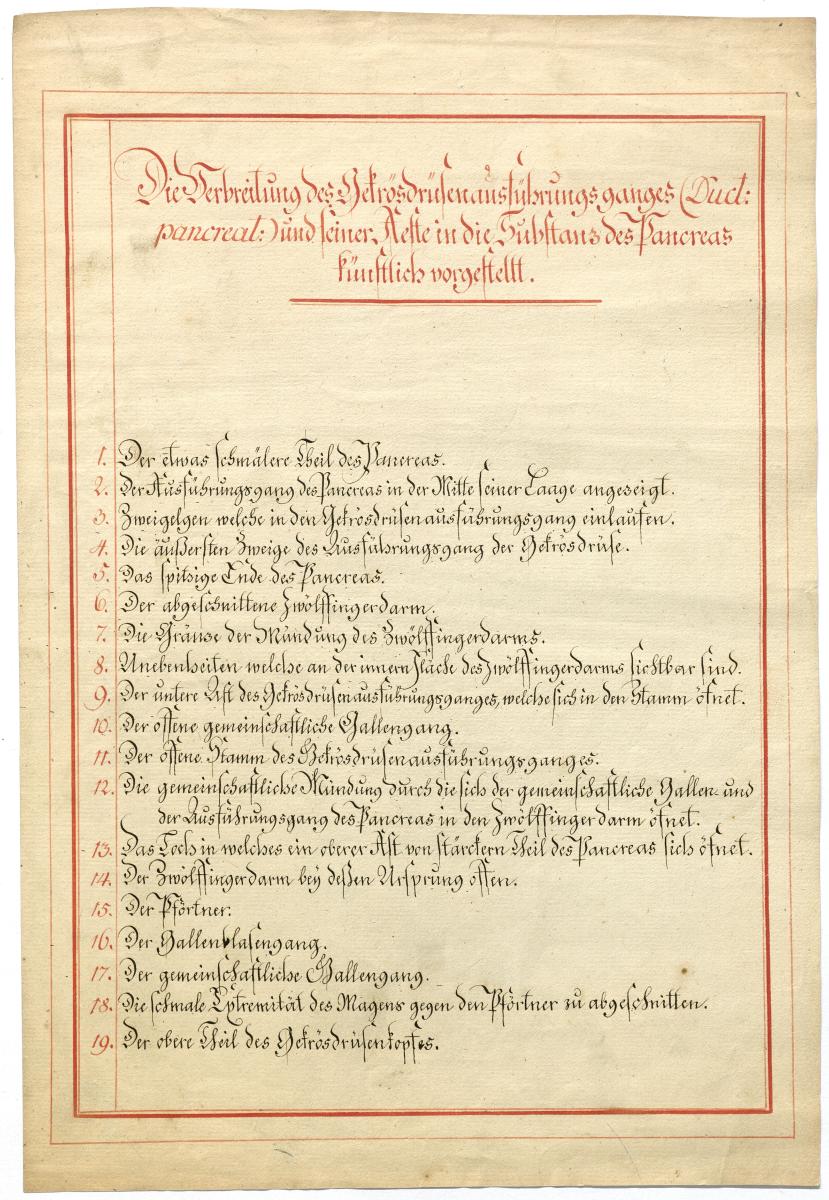 Die Verbreitung des Gekrösdrüsenausführungsganges (Duct:
pancreat:) und seiner Aeste in die Substanz des Pancreas
künstlich vorgestellt.
1. Der etwas schmälere Theil des Pancreas.
2. Der Ausführungsgang des Pancreas in der Mitte seiner Laage angezeigt.
3. Zweigelgen welche in den Gekrösdrüsenausführungsgang einlaufen.
4. Die äußersten Zweige des Ausführungsgang der Gekrösdrüse.
5. Das spitzige Ende des Pancreas.
6. Der abgeschnittene Zwölffingerdarm.
7. Die Gränze der Mündung des Zwölffingerdarms.
8. Unebenheiten welche an der innern Fläche des Zwölffingerdarms sichtbar sind.
9. Der untere Ast des Gekrösdrüsenausführungsganges, welche sich in den Stamm öfnet.
10. Der offene gemeinschaftliche Gallengang.
11. Der offene Stamm des Gekrösdrüsenausführungsganges.
12. Die gemeinschaftliche Mündung durch die sich der gemeinschaftliche Gallen- und
der Ausführungsgang des Pancreas in den Zwölffingerdarm öfnet.
13. Das Loch in welches ein oberer Ast von stärckern Theil des Pancreas sich öfnet.
14. Der Zwölffingerdarm bey deßen Ursprung offen.
15. Der Pförtner.
16. Der Gallenblasengang.
17. Der gemeinschaftliche Gallengang.
18. Die schmale Extremität des Magens gegen den Pförtner zu abgeschnitten.
19. Der obere Theil des Gekrösdrüsenkopfes.